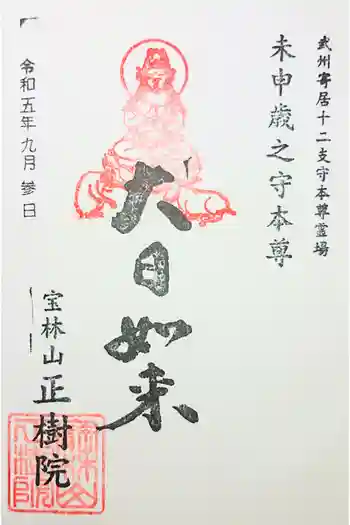 武州寄居十二支守本尊霊場
未申歳之守本尊
大日如来
令和五年九月参日
宝林山正樹院